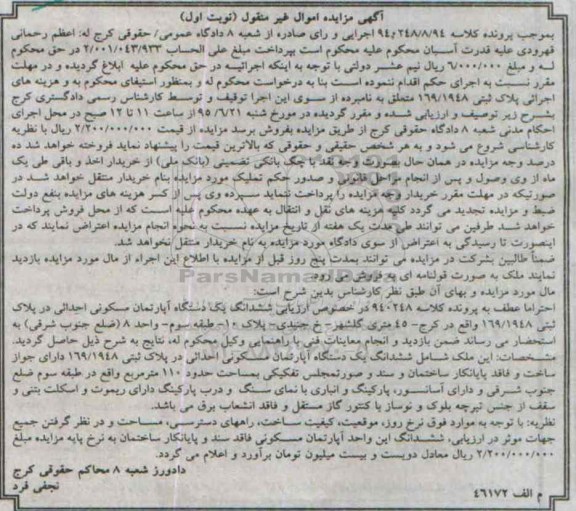 آگهی مزایده اموال غیر منقول (نوبت اول)
بموجب پرونده کلاسه ۹۴۰۲۴۸/۸/۹۴ اجرایی و رای صادره از شعبه ۸ دادگاه عمومی/ حقوقی کرج له: اعظم رحمانی
قهرودی علیه قدرت آسبان محکوم علیه محکوم است بپرداخت مبلغ علی الحساب ۲/۰۰۱/۰۴۳/۹۳۳ در حق محکوم
له و مبلغ ۶/۰۰۰/۰۰۰ ریال نیم عشر دولتی با توجه به اینکه اجرائیه در حق محکوم علیه ابلاغ گردیده و در مهلت
مقرر نسبت به اجرای حکم اقدام ننموده است بنا به درخواست محکوم له و بمنظور استیفای محکوم به و هزینه های
اجرائی پلاک ثبتی ۱۶۹/۱۹۴۸ متعلق به نامبرده از سوی این اجرا توقیف و توسط کارشناس رسمی دادگستری کرج
بشرح زیر توصیف و ارزیابی شده و مقرر گردیده در مورخ شنبه ۹۵/۶/۲۱ از ساعت ۱۱ تا ۱۲ صبح در محل اجرای
احکام مدنی شعبه ۸ دادگاه حقوقی کرج از طریق مزایده بفروش برسد مزایده از قیمت ۲/۲۰۰/۰۰۰/۰۰۰ ریال با نظریه
کارشناسی شروع می شود و به هر شخص حقیقی و حقوقی که بالاترین قیمت را پیشنهاد نماید فروخته خواهد شد ده
درصد وجه مزایده در همان حال بصورت وجه نقد یا چک بانکی تضمینی (بانک ملی) از خریدار اخذ و باقی طی یک
ماه از وی وصول و پس از انجام مراحل قانونی و صدور حکم تملیک مورد مزایده بنام خریدار منتقل خواهد شد در
صورتیکه در مهلت مقرر خریدار وجه مزایده را پرداخت ننماید سپرده وی پس از کسر هزینه های مزایده بنفع دولت
ضبط و مزایده تجدید می گردد کلیه هزینه های نقل و انتقال به عهده محکوم علیه است که از محل فروش پرداخت
خواهد شد طرفین می توانند طی مدت یک هفته از تاریخ مزایده نسبت به نحوه انجام مزایده اعتراض نمایند که در
اینصورت تا رسیدگی به اعتراض از سوی دادگاه مورد مزایده به نام خریدار منتقل نخواهد شد.
ضمناً طالبین بشرکت در مزایده می توانند بمدت پنج روز قبل از مزایده با اطلاع این اجراء از مال مورد مزایده بازدید
نمایند ملک به صورت قولنامه ای به فروش می رود
ParsNamadData
مال مورد مزایده و بهای آن طبق نظر کارشناس بدین شرح است:
احتراما عطف به پرونده کلاسه ۹۴۰۲۴۸ در خصوص ارزیابی ششدانگ یک دستگاه آپارتمان مسکونی احداثی در پلاک
ثبتی ۱۶۹/۱۹۴۸ واقع در کرج- ۴۵ متری گلشهر- خ جنیدی- پلاک ۱۰- طبقه سوم- واحد ۸ (ضلع جنوب شرقی) به
استحضار می رساند ضمن بازدید و انجام معاینات فنی با راهنمایی وکیل محکوم له، نتایج به شرح ذیل حاصل گردید.
مشخصات: این ملک شامل ششدانگ یک دستگاه آپارتمان مسکونی احداثی در پلاک ثبتی ۱۶۹/۱۹۴۸ دارای جواز
ساخت و فاقد پایانکار ساختمان و سند و صورتمجلس تفکیکی بمساحت حدود ۱۱۰ مترمربع واقع در طبقه سوم ضلع
جنوب شرقی و دارای آسانسور، پارکینگ و انباری با نمای سنگ و درب پارکینگ دارای ریموت و اسکلت بتنی و
سقف از جنس تیرچه بلوک و نوساز با کنتور گاز مستقل و فاقد انشعاب برق می باشد.
نظریه: با توجه به موارد فوق نرخ روز، موقعیت، کیفیت ساخت، راههای دسترسی، مساحت و در نظر گرفتن جمیع
جهات موثر در ارزیابی، ششدانگ این واحد آپارتمان مسکونی فاقد سند و پایانکار ساختمان به نرخ پایه مزایده مبلغ
۲/۲۰۰/۰۰۰/۰۰۰ ریال معادل دویست و بیست میلیون تومان برآورد و اعلام می گردد.
دادورز شعبه ۸ محاکم حقوقی کرج
نجفی فرد
م الف ۴۶۱۷۲